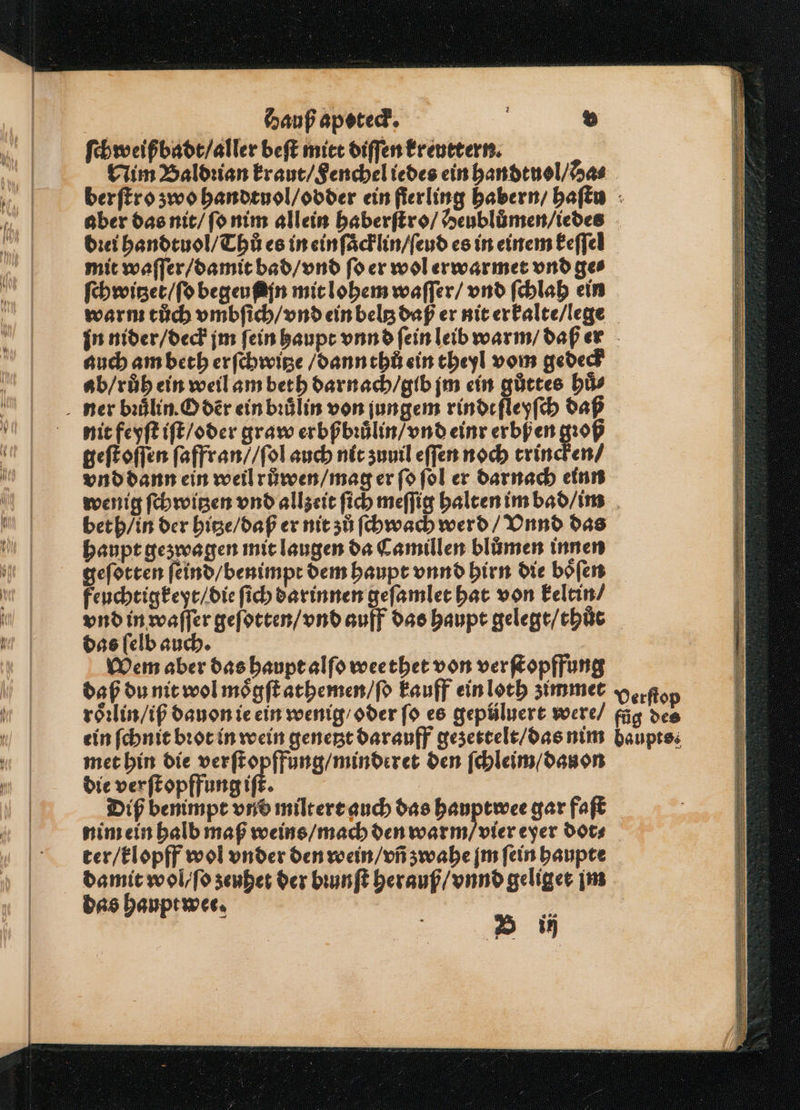 Hauß apoteck. v
ſchweißbadt/aller beſt mitt diſſen kreuttern.
Nim Baldꝛian kraut/Fenchel iedes ein handtuol/Ha⸗
berſtro zwo handtuol/odder ein fierling habern/ haſtu
aber das nit/ ſo nim allein haberſtro/ Heublůmen/iedes
dꝛei handtuol/Thů es in ein ſäcklin/ſeud es in einem keſſel
mit waſſer/damit bad/vnd ſo er wol erwarmet vnd ge⸗
ſchwitzet/ſo begeuß jn mit lohem waſſer/ vnd ſchlah ein
warm tůch vmbſich/vnd ein beltz daß er nit erkalte/lege
jn nider/deck jm ſein haupt vnnd ſein leib warm/ daß er
auch am beth erſchwitze /dann thů ein theyl vom gedeck
ab/růh ein weil am beth darnach/gib jm ein gůttes hů⸗
ner bꝛůlin. Odēr ein bꝛůlin von jungem rindtfleyſch daß
nit feyſt iſt/oder graw erbßbꝛůlin/vnd einr erbßen gꝛoß
geſtoſſen ſaffran//ſol auch nit zuuil eſſen noch trincken/
vnd dann ein weil růwen/mag er ſo ſol er darnach einn
wenig ſchwitzen vnd allzeit ſich meſſig halten im bad/im
beth/in der hitze/daß er nit zů ſchwach werd / Vnnd das
haupt gezwagen mit laugen da Camillen blůmen innen
geſotten ſeind/benimpt dem haupt vnnd hirn die böſen
feuchtigkeyt/die ſich darinnen geſamlet hat von keltin/
vnd in waſſer geſotten/vnd auff das haupt gelegt/thůt
das ſelb auch.
Wem aber das haupt alſo wee thet von verſtopffung
daß du nit wol mögſt athemen/ſo kauff ein loth zimmet
röꝛlin/iß dauon ie ein wenig/oder ſo es gepüluert were/
ein ſchnit bꝛot in wein genetzt darauff gezettelt/das nim
met hin die verſtopffung/minderet den ſchleim/dauon
die verſtopffung iſt.
Verſtop
füg des
haupts.
Diß benimpt vnd miltert auch das hauptwee gar faſt
nim ein halb maß weins/mach den warm/vier eyer dot⸗
ter/klopff wol vnder den wein/vñ zwahe jm ſein haupte
damit wol/ſo zeuhet der bꝛunſt herauß/vnnd geliget jm
das hauptwee.
B iij